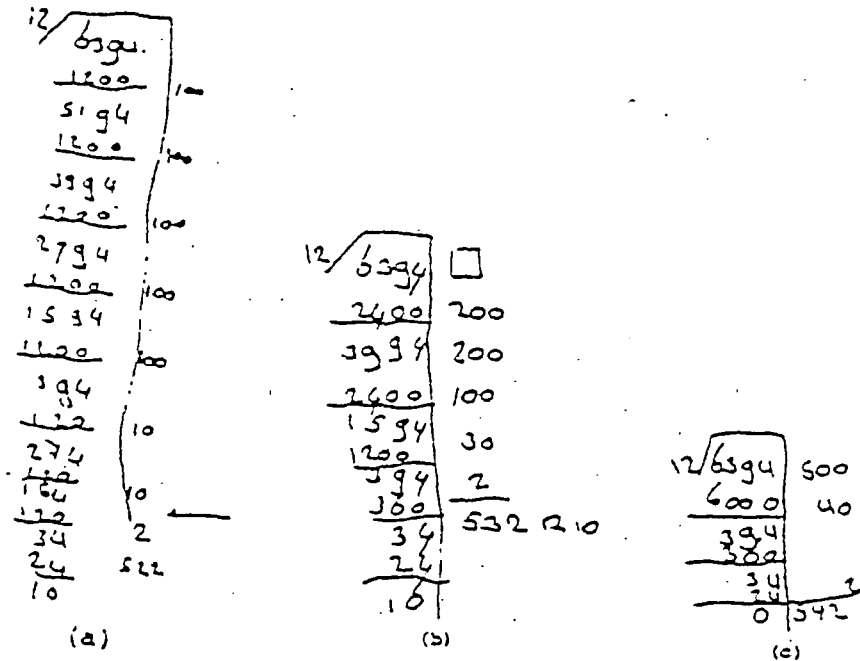 12 6394
1200 100
5194
1200 100
3994
1200 100
2794
1200 100
1594
1200 100
394
120 10
274
120 10
154
120
34 2
24 522
10
(a)
12 6394
2400 200
3994 200
2400 100
1594
1200 30
394 2
360
34 532 R 10
24
10
(b)
12 6394 500
6000 40
394
360
34
24 2
0 542
(c)